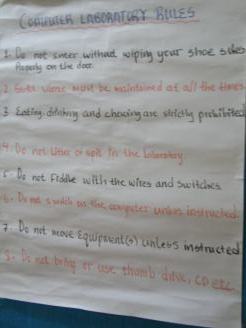 COMPUTER LABORATORY RULES
1. Do not enter without wiping your shoe soles
Properly on the door.
2. must be maintained at all the times
3 Eating, drinking and chewing are strictly prohibited
4. Do not litter or spit in the laboratory.
5. Do not Fiddle with the wires and switches.
6. Do not switch on the computer unless instructed.
7. Do not move Equipment(s) unless instructed
8. Do not bring or use thumb drive, CD etc.